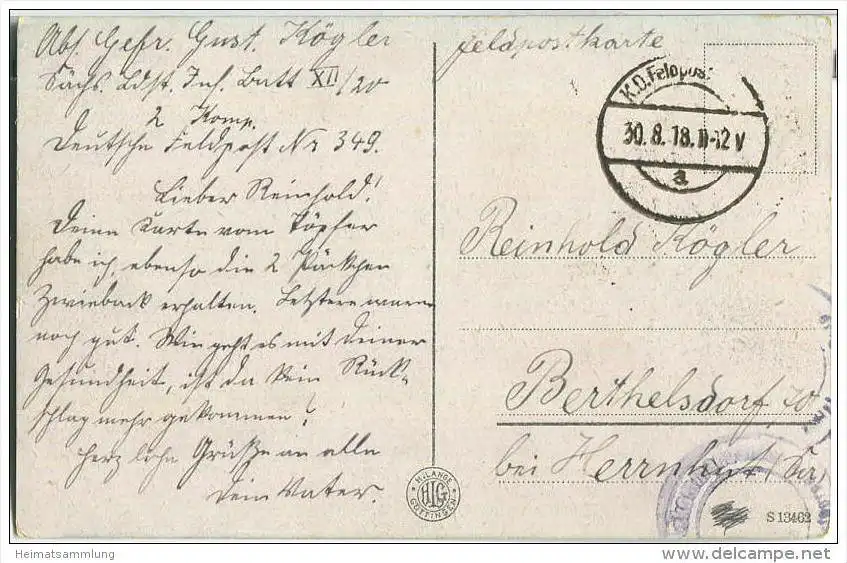 Abs. Gefr. Gust. Kögler
Sächs. Ldst. Inf. Batt XII/20
2 Komp.
Deutsche Feldpost Nr 349.
Lieber Reinhold!
Deine Karte vom Töpfer
habe ich, ebenso die 2 Päckchen
Zwieback erhalten. Letztere waren
noch gut. Wie geht es mit Deiner
Gesundheit, ist da kein Rück-
schlag mehr gekommen?
Herzliche Grüße an alle
Dein Vater.
Feldpostkarte
K.D. Feldpost
30.8.18.11-12V
a
Reinhold Kögler
Berthelsdorf
bei Herrnhut
H. LANGE
HLG
GÖTTINGEN
S 13462
Heimatsammlung
www.delcampe.net